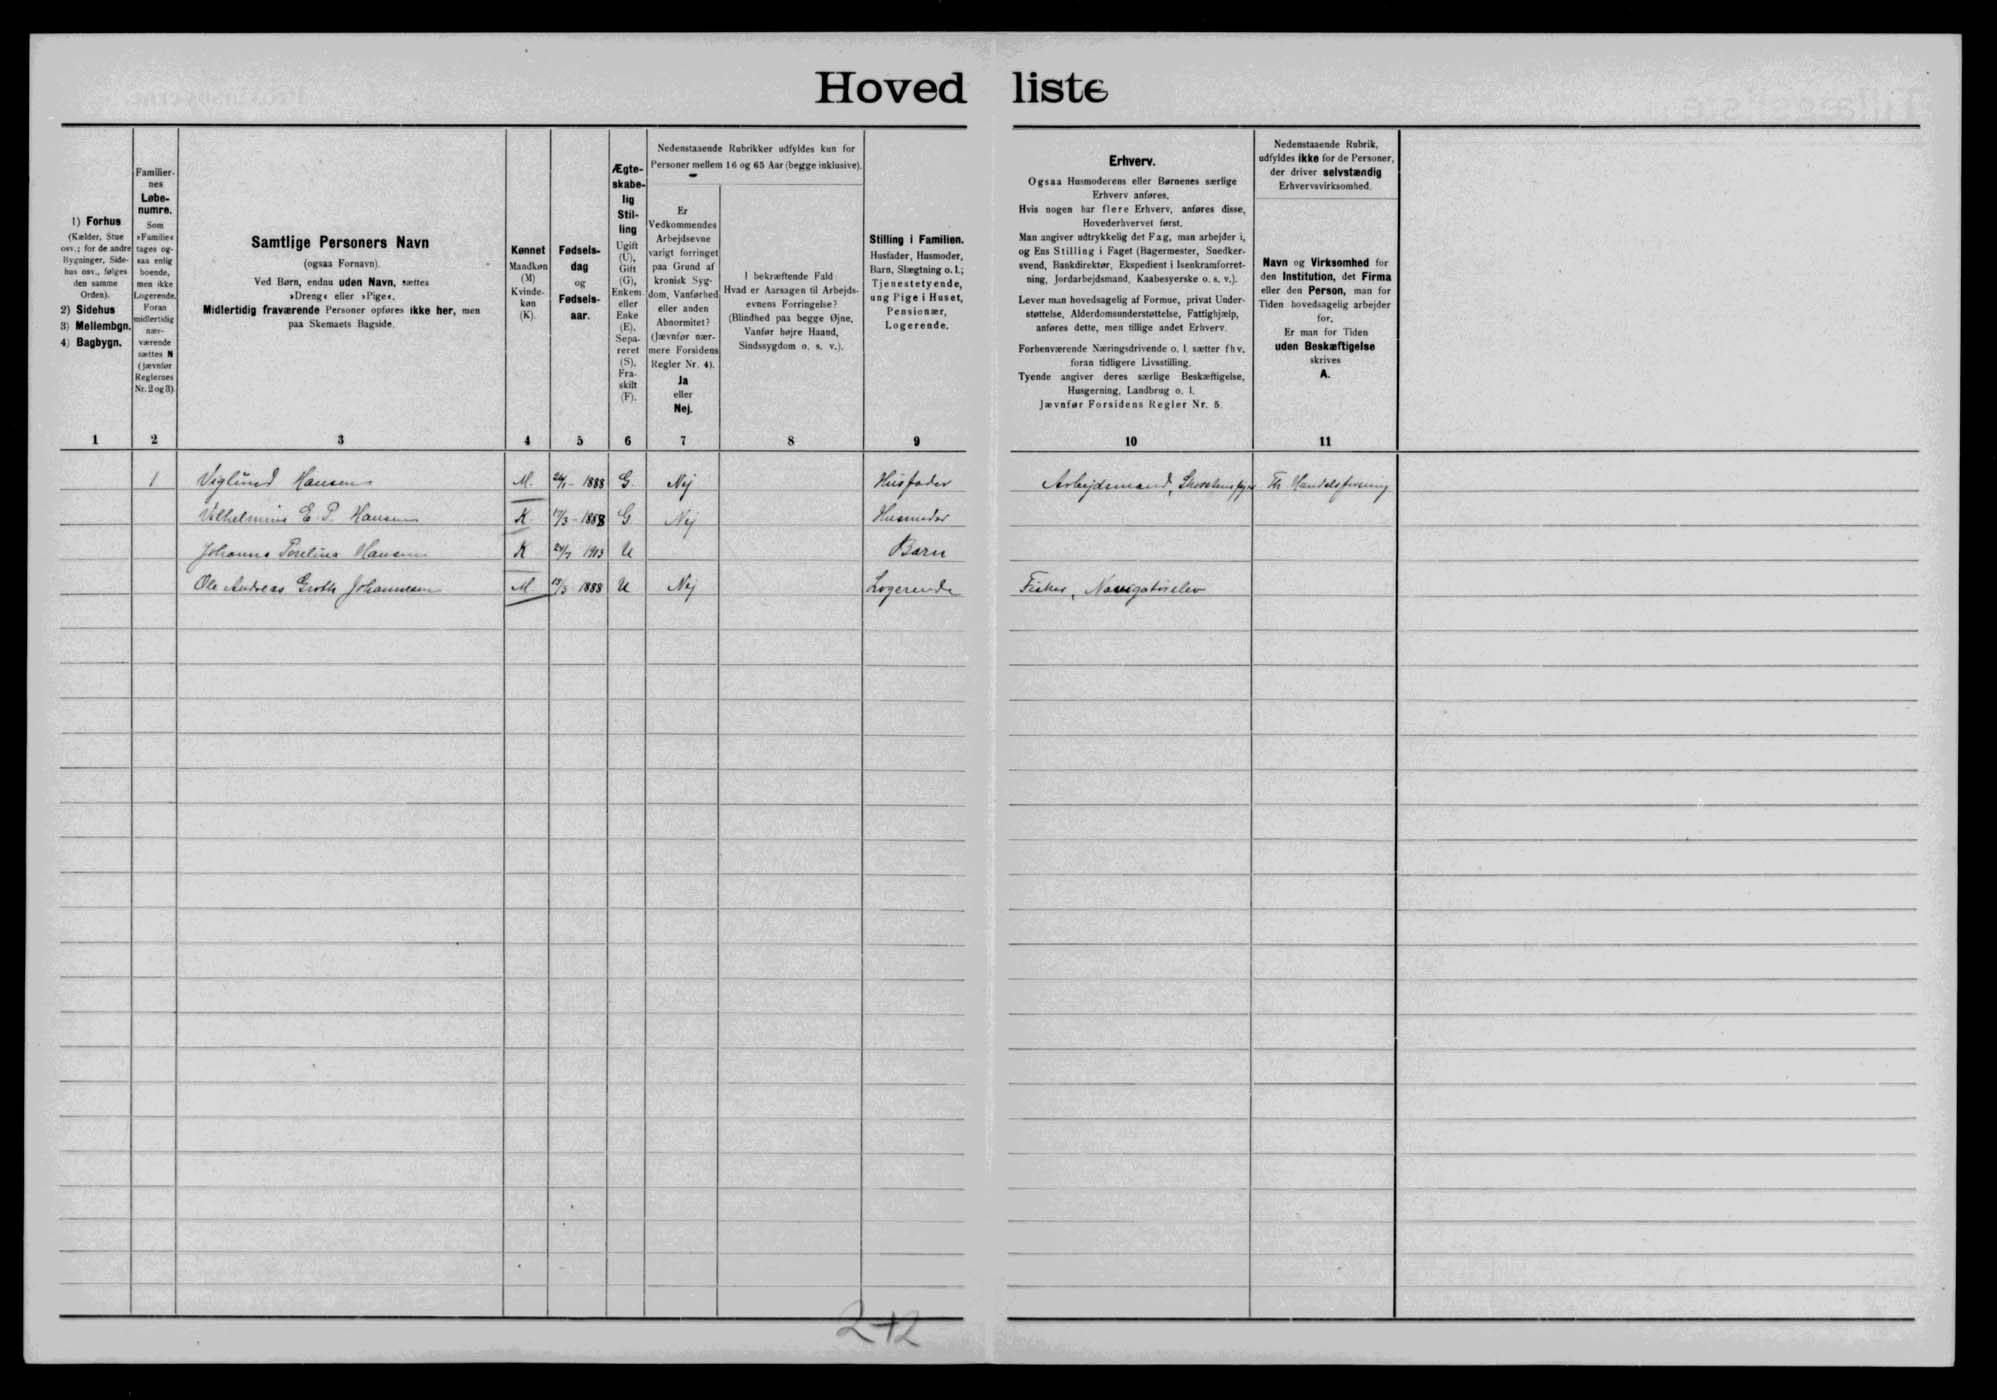 Hovedliste
1) Forhus
(Kælder, Stue
osv.; for de andre
Bygninger, Side-
hus osv., følges
den samme
Orden).
2) Sidehus
3) Mellembgn.
4) Bagbygn.
Familier-
nes
Løbe-
numre.
Som
»Familie«
tages og-
saa enlig
boende,
men ikke
Logerende.
Foran
midlertidig
nær-
værende
sættes N
(jævnfør
Reglernes
Nr. 2 og 3).
Samtlige Personers Navn
(ogsaa Fornavn).
Ved Børn, endnu uden Navn, sættes
»Dreng« eller »Pige«.
Midlertidig fraværende Personer opføres ikke her, men
paa Skemaets Bagside.
Kønnet
Mandkøn
(M)
Kvinde-
køn
(K).
Fødsels-
dag
og
Fødsels-
aar.
Ægte-
skabe-
lig
Stil-
ling
Ugift
(U),
Gift
(G),
Enkem.
eller
Enke
(E),
Sepa-
reret
(S),
Fra-
skilt
(F).
Nedenstaaende Rubrikker udfyldes kun for
Personer mellem 16 og 65 Aar (begge inklusive).
Er
Vedkommendes
Arbejdsevne
varigt forringet
paa Grund af
kronisk Syg-
dom, Vanførhed
eller anden
Abnormitet?
(Jævnfør nær-
mere Forsidens
Regler Nr. 4).
Ja
eller
Nej.
I bekræftende Fald:
Hvad er Aarsagen til Arbejds-
evnens Forringelse?
(Blindhed paa begge Øjne,
Vanfør højre Haand,
Sindssygdom o. s. v.).
Stilling i Familien.
Husfader, Husmoder,
Barn, Slægtning o. l.;
Tjenestetyende,
ung Pige i Huset,
Pensionær,
Logerende.
Erhverv.
Ogsaa Husmoderens eller Børnenes særlige
Erhverv anføres.
Hvis nogen har flere Erhverv, anføres disse,
Hovederhvervet først.
Man angiver udtrykkelig det Fag, man arbejder i,
og Ens Stilling i Faget (Bagermester, Snedker-
svend, Bankdirektør, Ekspedient i Isenkramforret-
ning, Jordarbejdsmand, Kaabesyerske o. s. v.).
Lever man hovedsagelig af Formue, privat Under-
støttelse, Alderdomsunderstøttelse, Fattighjælp,
anføres dette, men tillige andet Erhverv.
Forhenværende Næringsdrivende o. l. sætter fhv.
foran tidligere Livsstilling.
Tyende angiver deres særlige Beskæftigelse,
Husgerning, Landbrug o. l.
Jævnfør Forsidens Regler Nr. 5.
Nedenstaaende Rubrik,
udfyldes ikke for de Personer,
der driver selvstændig
Erhvervsvirksomhed.
Navn og Virksomhed for
den Institution, det Firma
eller den Person, man for
Tiden hovedsagelig arbejder
for.
Er man for Tiden
uden Beskæftigelse
skrives
A.
1 2 3 4 5 6 7 8 9 10 11
1 Viglund Hansen M. 24/1 - 1888 G. Nej Husfader Arbejdsmand,
Vilhelmine E. P. Hansen K. 17/3 - 1888 G Nej Husmoder
Johanne Hansen K 1913 U Barn
Ole Andreas Groth Johannesen M /3 1888 U Nej Logerende Fisker, Navigatiselev
2+2